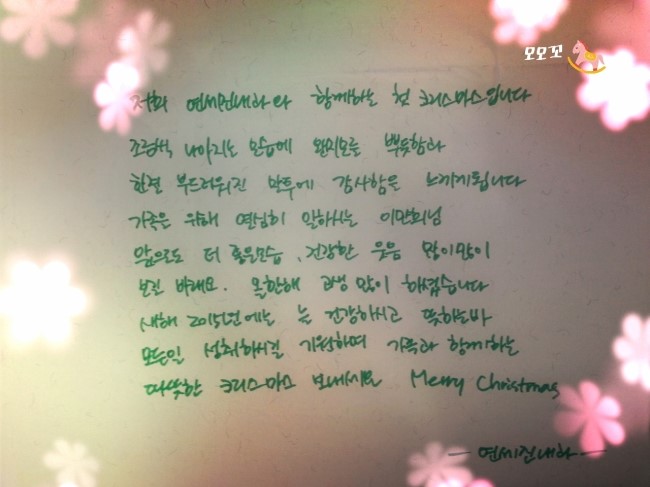 모모꼬
저희 연세진내과와 함께하는 첫 크리스마스입니다
조금씩 나아지는 모습에 왠지모를 뿌듯함과
한결 부드러워진 말투에 감사함을 느끼게됩니다
가족을 위해 열심히 일하시는 이만회님
앞으로도 더 좋은모습, 건강한 웃음 많이많이
보길 바래요. 올한해 고생 많이 하셨습니다
새해 2015년에는 늘 건강하시고 뜻하는바
모든일 성취하시길 기원하며 가족과 함께하는
따뜻한 크리스마스 보내세요 Merry Christmas
- 연세진내과 -